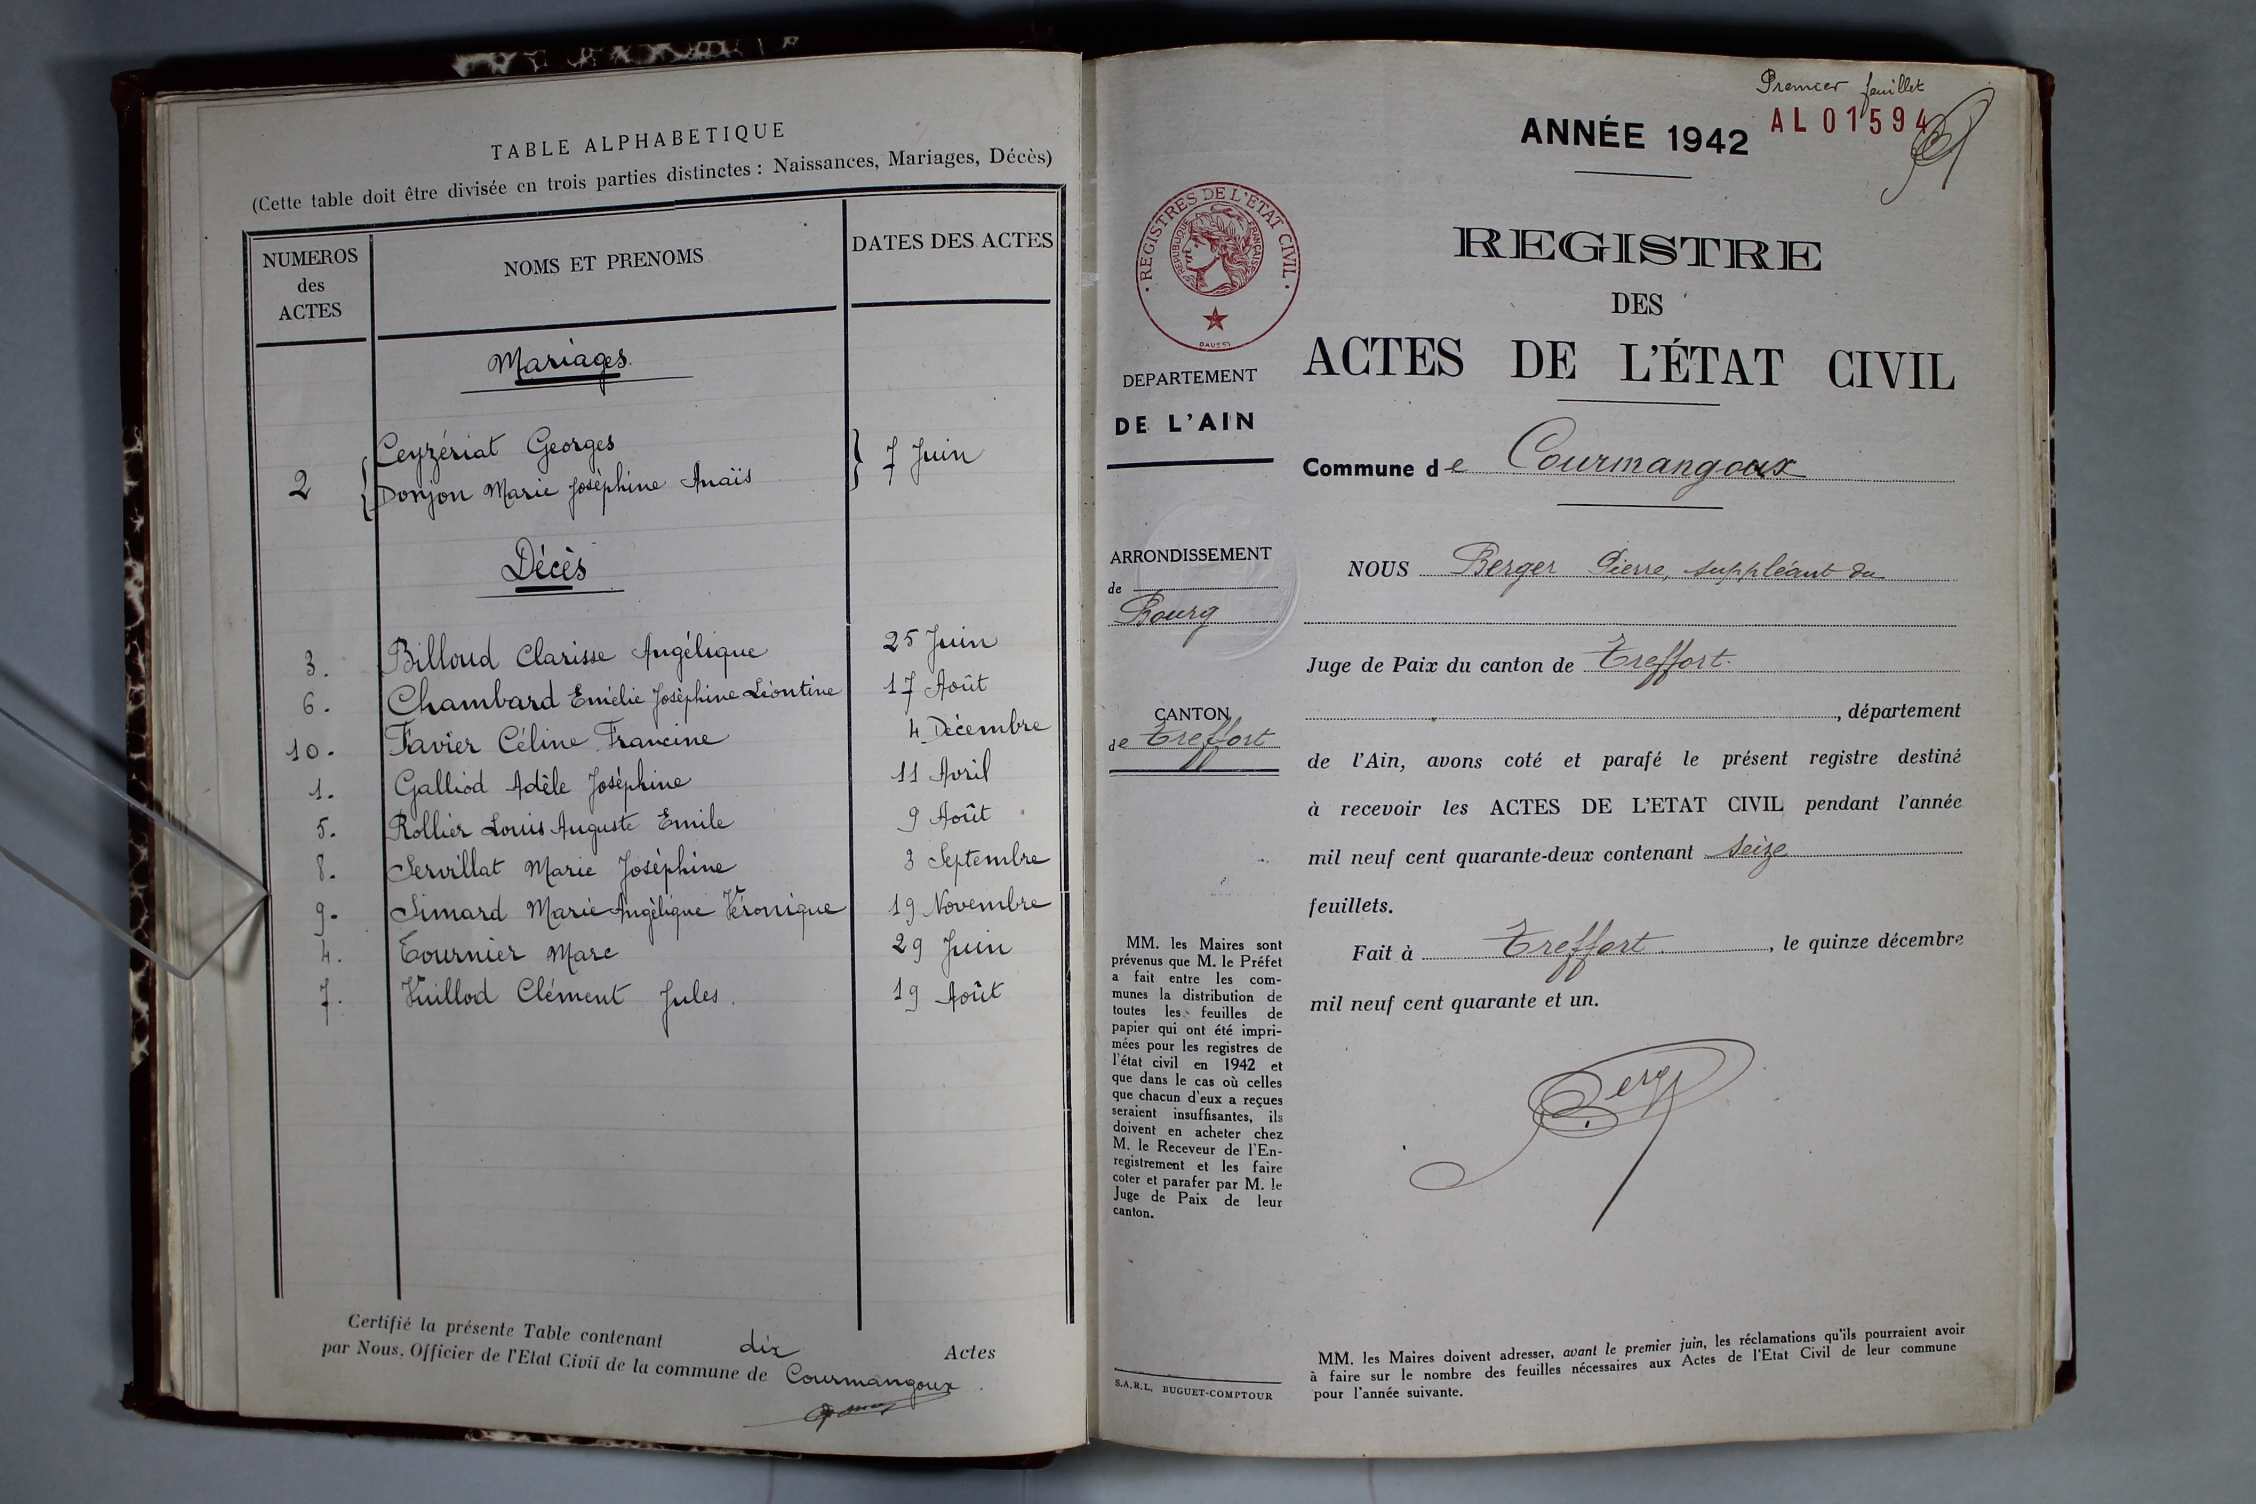 TABLE ALPHABETIQUE
(Cette table doit être divisée en trois parties distinctes : Naissances, Mariages, Décès)
NUMEROS des ACTES
NOMS ET PRENOMS
DATES DES ACTES
Mariages.
2 { Ceyzériat Georges } 7 Juin
Donjon Marie Joséphine Anaïs
Décès
3. Billoud Clarisse Angélique 25 Juin
6. Chambard Emélie Joséphine Léontine 17 Août
10. Favier Céline Francine 4 Décembre
1. Galliod Adèle Joséphine 11 Avril
5. Rollier Louis Auguste Emile 9 Août
8. Servillat Marie Joséphine 3 Septembre
9. Simard Marie Angélique Véronique 19 Novembre
4. Tournier Marc 29 Juin
7. Vuillod Clément Jules. 19 Août
Certifié la présente Table contenant dix Actes
par Nous, Officier de l'Etat Civil de la commune de Courmangoux
Premier feuillet
AL 01594
ANNÉE 1942
REGISTRE
DES
ACTES DE L'ÉTAT CIVIL
· REGISTRES DE L'ETAT CIVIL ·
REPUBLIQUE FRANÇAISE
DEPARTEMENT
DE L'AIN
Commune de Courmangoux
ARRONDISSEMENT
de
Bourg
NOUS Berger Pierre, suppléant du
Juge de Paix du canton de Treffort.
, département
CANTON
de Treffort
de l'Ain, avons coté et parafé le présent registre destiné
à recevoir les ACTES DE L'ETAT CIVIL pendant l'année
mil neuf cent quarante-deux contenant seize
feuillets.
Fait à Treffort, le quinze décembre
mil neuf cent quarante et un.
MM. les Maires sont
prévenus que M. le Préfet
a fait entre les com-
munes la distribution de
toutes les feuilles de
papier qui ont été impri-
mées pour les registres de
l'état civil en 1942 et
que dans le cas où celles
que chacun d'eux a reçues
seraient insuffisantes, ils
doivent en acheter chez
M. le Receveur de l'En-
registrement et les faire
coter et parafer par M. le
Juge de Paix de leur
canton.
S.A.R.L. BUGUET-COMPTOUR
MM. les Maires doivent adresser, avant le premier juin, les réclamations qu'ils pourraient avoir
à faire sur le nombre des feuilles nécessaires aux Actes de l'Etat Civil de leur commune
pour l'année suivante.